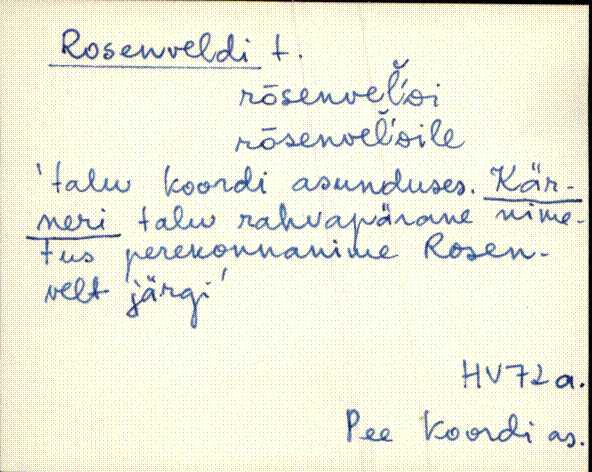 Rosenveldi t.
rōsenvel̆'ᴅi
rōsenvel̆'ᴅile
'talu Koordi asunduses. Kär-
neri talu rahvapärane nime-
tus perekonnanime Rosen-
velt järgi'
HV72a.
Pee Koordi as.